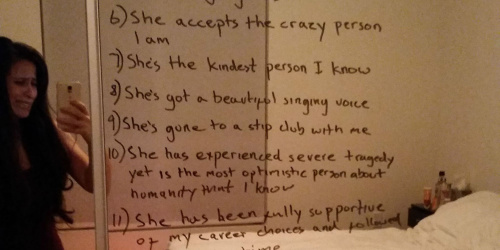 6) She accepts the crazy person
I am
7) She's the kindest person I know
8) She's got a beautiful singing voice
9) She's gone to a stip club with me
10) She has experienced severe tragedy
yet is the most optimistic person about
humanity that I know
11) She has been fully supportive
of my career choices and followed
time